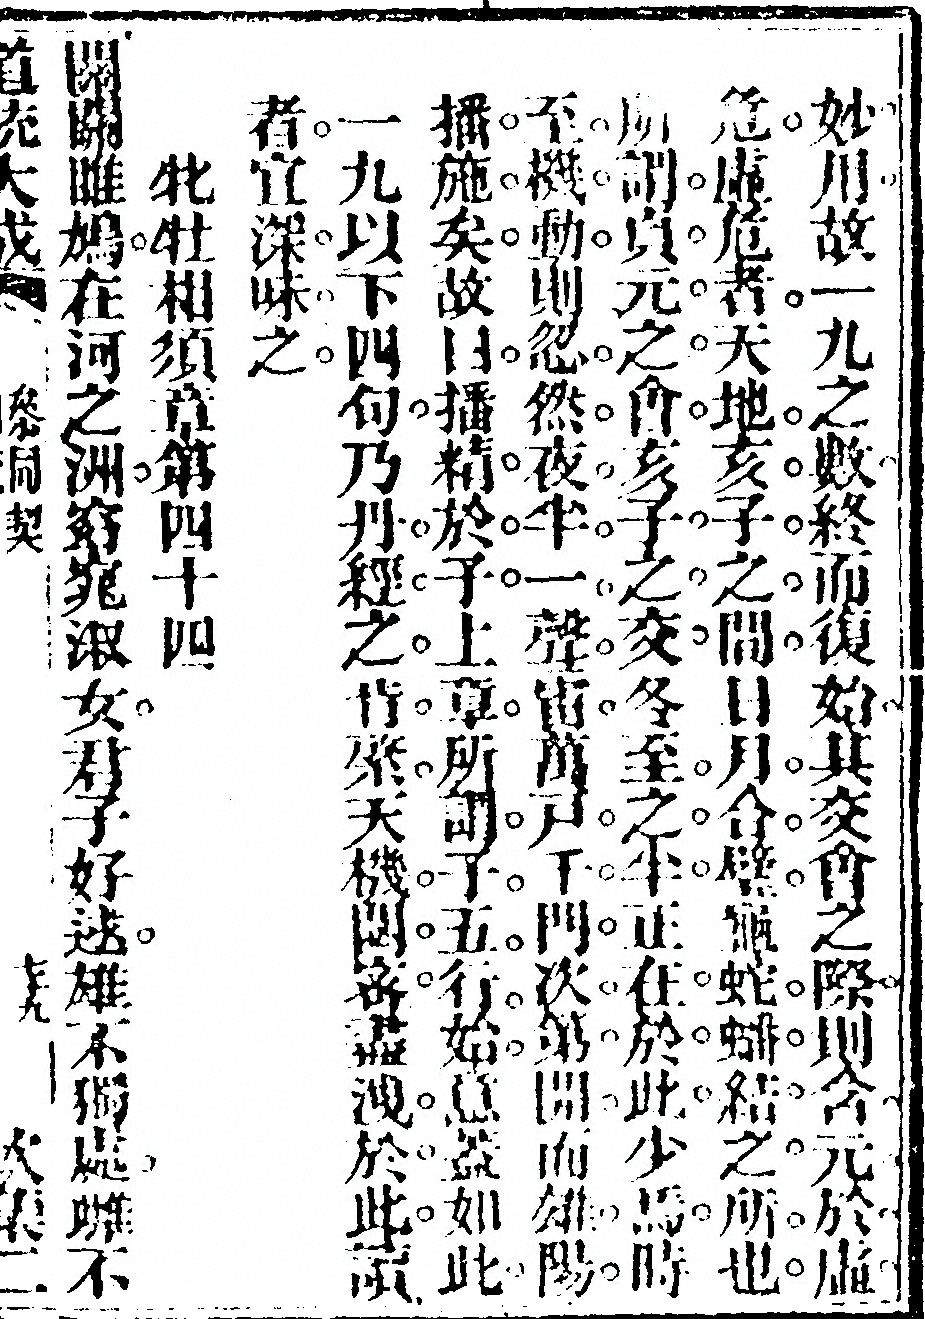 妙用故一九之數終而復始其交會之際則含元於虛
危虛危者天地亥子之間日月合璧龜蛇蟠結之所也
所謂貞元之會亥子之交冬至之半正在於此少焉時
至機動則忽然夜半一聲雷萬戸千門次第開而雄陽
播施矣故曰播精於子上章所謂子五行始意蓋如此
一九以下四句乃丹經之骨髓天機閟密盡洩於此
者宜深味之
牝牡相須章第四十四
關關雎鳩在河之洲窈窕淑女君子好逑雄不獨處雌不
道統大成
參同契
七九
火集二